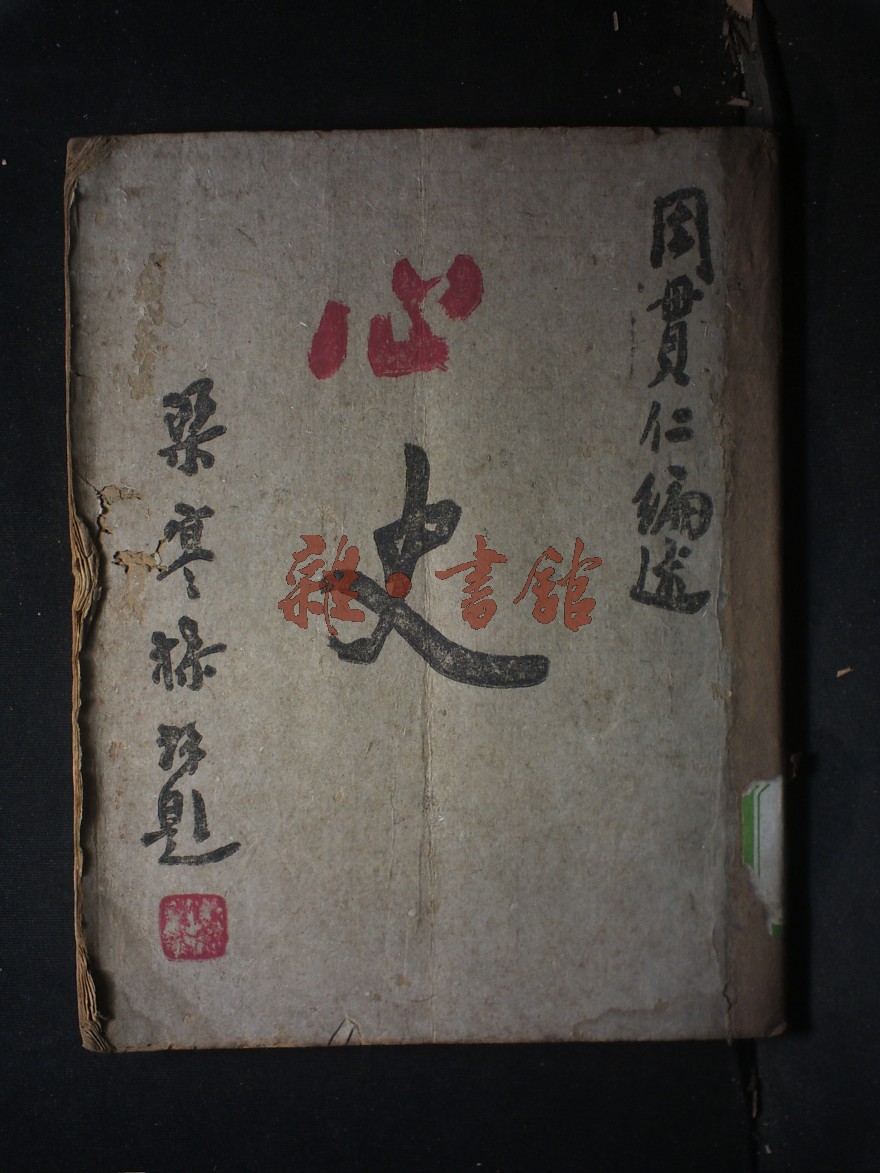 周貫仁編述
心史
梁寒操題
雜·書館